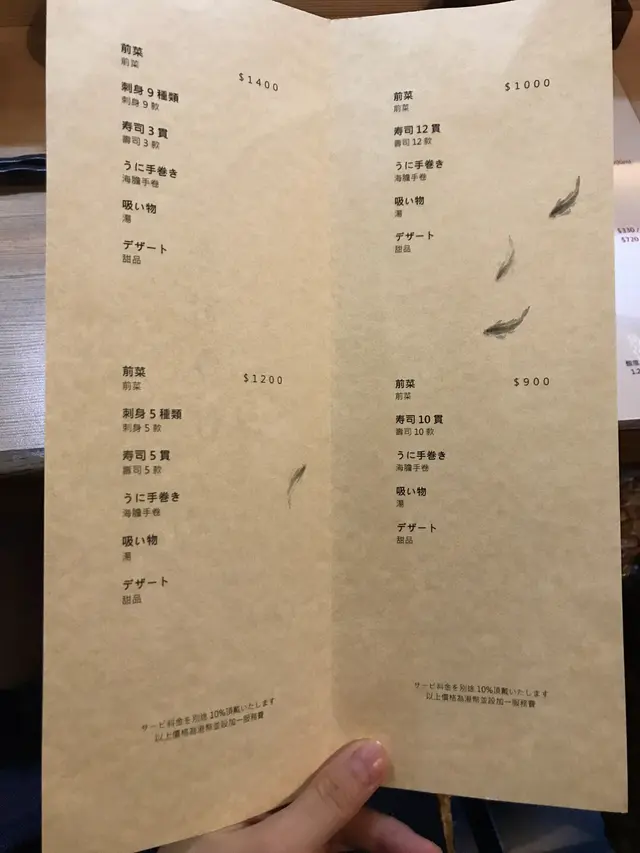 前菜
前菜
$1400
刺身 9 種類
刺身 9 款
寿司 3 貫
壽司 3 款
うに手巻き
海膽手卷
吸い物
湯
デザート
甜品
前菜
前菜
$1200
刺身 5 種類
刺身 5 款
寿司 5 貫
壽司 5 款
うに手巻き
海膽手卷
吸い物
湯
デザート
甜品
サービ料金を別途 10%頂戴いたします
以上價格為港幣並設加一服務費
前菜
前菜
$1000
寿司 12 貫
壽司 12 款
うに手巻き
海膽手卷
吸い物
湯
デザート
甜品
前菜
前菜
$900
寿司 10 貫
壽司 10 款
うに手巻き
海膽手卷
吸い物
湯
デザート
甜品
サービ料金を別途 10%頂戴いたします
以上價格為港幣並設加一服務費
$330 /
$720